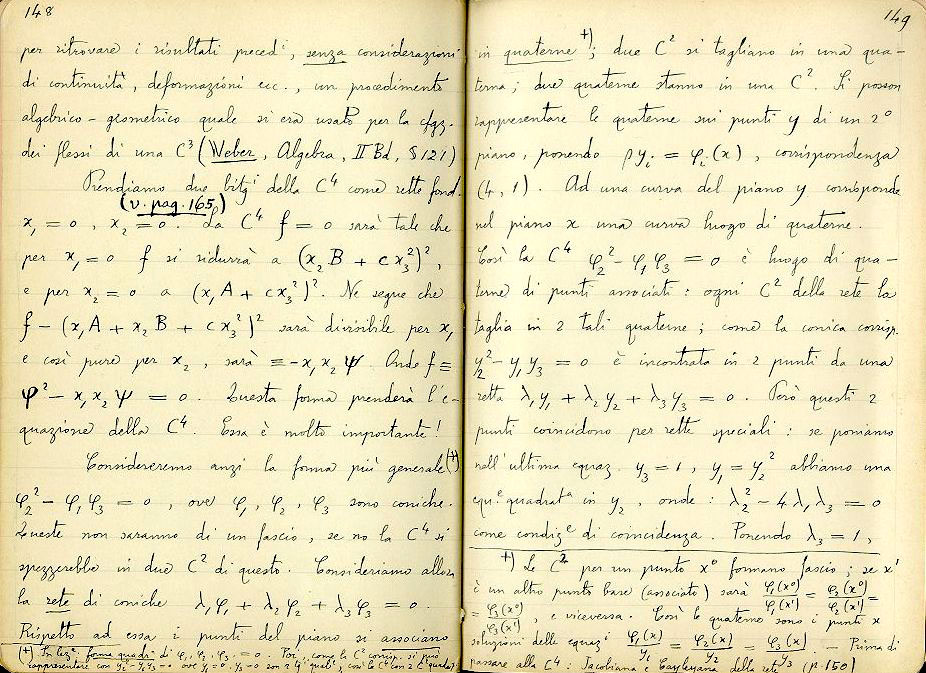 148
per ritrovare i risultati precedⁱ, senza considerazioni
di continuità, deformazioni ecc., un procedimento
algebrico-geometrico quale si era usato per la cfgz.
dei flessi di una C³ (Weber, Algebra, II Bd, §121)
Prendiamo due bitgⁱ della C⁴ come rette fond.
(v. pag. 165)
x₁ = 0, x₂ = 0. La C⁴ f = 0 sarà tale che
per x₁ = 0 f si ridurrà a (x₂B + cx₃²)²,
e per x₂ = 0 a (x₁A + cx₃²)². Ne segue che
f − (x₁A + x₂B + cx₃²)² sarà divisibile per x₁
e così pure per x₂, sarà ≡ −x₁x₂ψ. Onde f ≡
φ² − x₁x₂ψ = 0. Questa forma prenderà l'e-
quazione della C⁴. Essa è molto importante!
Considereremo anzi la forma più generale (+)
φ₂² − φ₁φ₃ = 0, ove φ₁, φ₂, φ₃ sono coniche.
Queste non saranno di un fascio, se no la C⁴ si
spezzerebbe in due C² di questo. Consideriamo allora
la rete di coniche λ₁φ₁ + λ₂φ₂ + λ₃φ₃ = 0.
Rispetto ad essa i punti del piano si associano
(+) forma quadr. di φ₁, φ₂, φ₃ = 0. Poi, come la C² corrisp. si può
rappresentare con y₂² − y₁y₃ = 0
149
in quaterne +); due C² si tagliano in una qua-
terna; due quaterne stanno in una C². Si posson
rappresentare le quaterne sui punti y di un 2°
piano, ponendo ρyᵢ = φᵢ(x), corrispondenza
(4, 1). Ad una curva del piano y corrisponde
nel piano x una curva luogo di quaterne.
Così la C⁴ φ₂² − φ₁φ₃ = 0 è luogo di qua-
terne di punti associati: ogni C² della rete la
taglia in 2 tali quaterne; come la conica corrisp.
y₂² − y₁y₃ = 0 è incontrata in 2 punti da una
retta λ₁y₁ + λ₂y₂ + λ₃y₃ = 0. Però questi 2
punti coincidono per rette speciali: se poniamo
nell'ultima equaz. y₃ = 1, y₁ = y₂² abbiamo una
equᵉ quadratᵃ in y₂, onde: λ₂² − 4λ₁λ₃ = 0
come condizᵉ di coincidenza. Ponendo λ₃ = 1,
+) Le C² per un punto x⁰ formano fascio; se x'
è un altro punto base (associato) sarà φ₁(x⁰)/φ₁(x') = φ₂(x⁰)/φ₂(x') =
= φ₃(x⁰)/φ₃(x'), e viceversa. Così le quaterne sono i punti x
soluzioni delle equazⁱ φ₁(x)/y₁ = φ₂(x)/y₂ = φ₃(x)/y₃. – Prima di
passare alla C⁴: Jacobiana e Cayleyana della rete (p. 150)